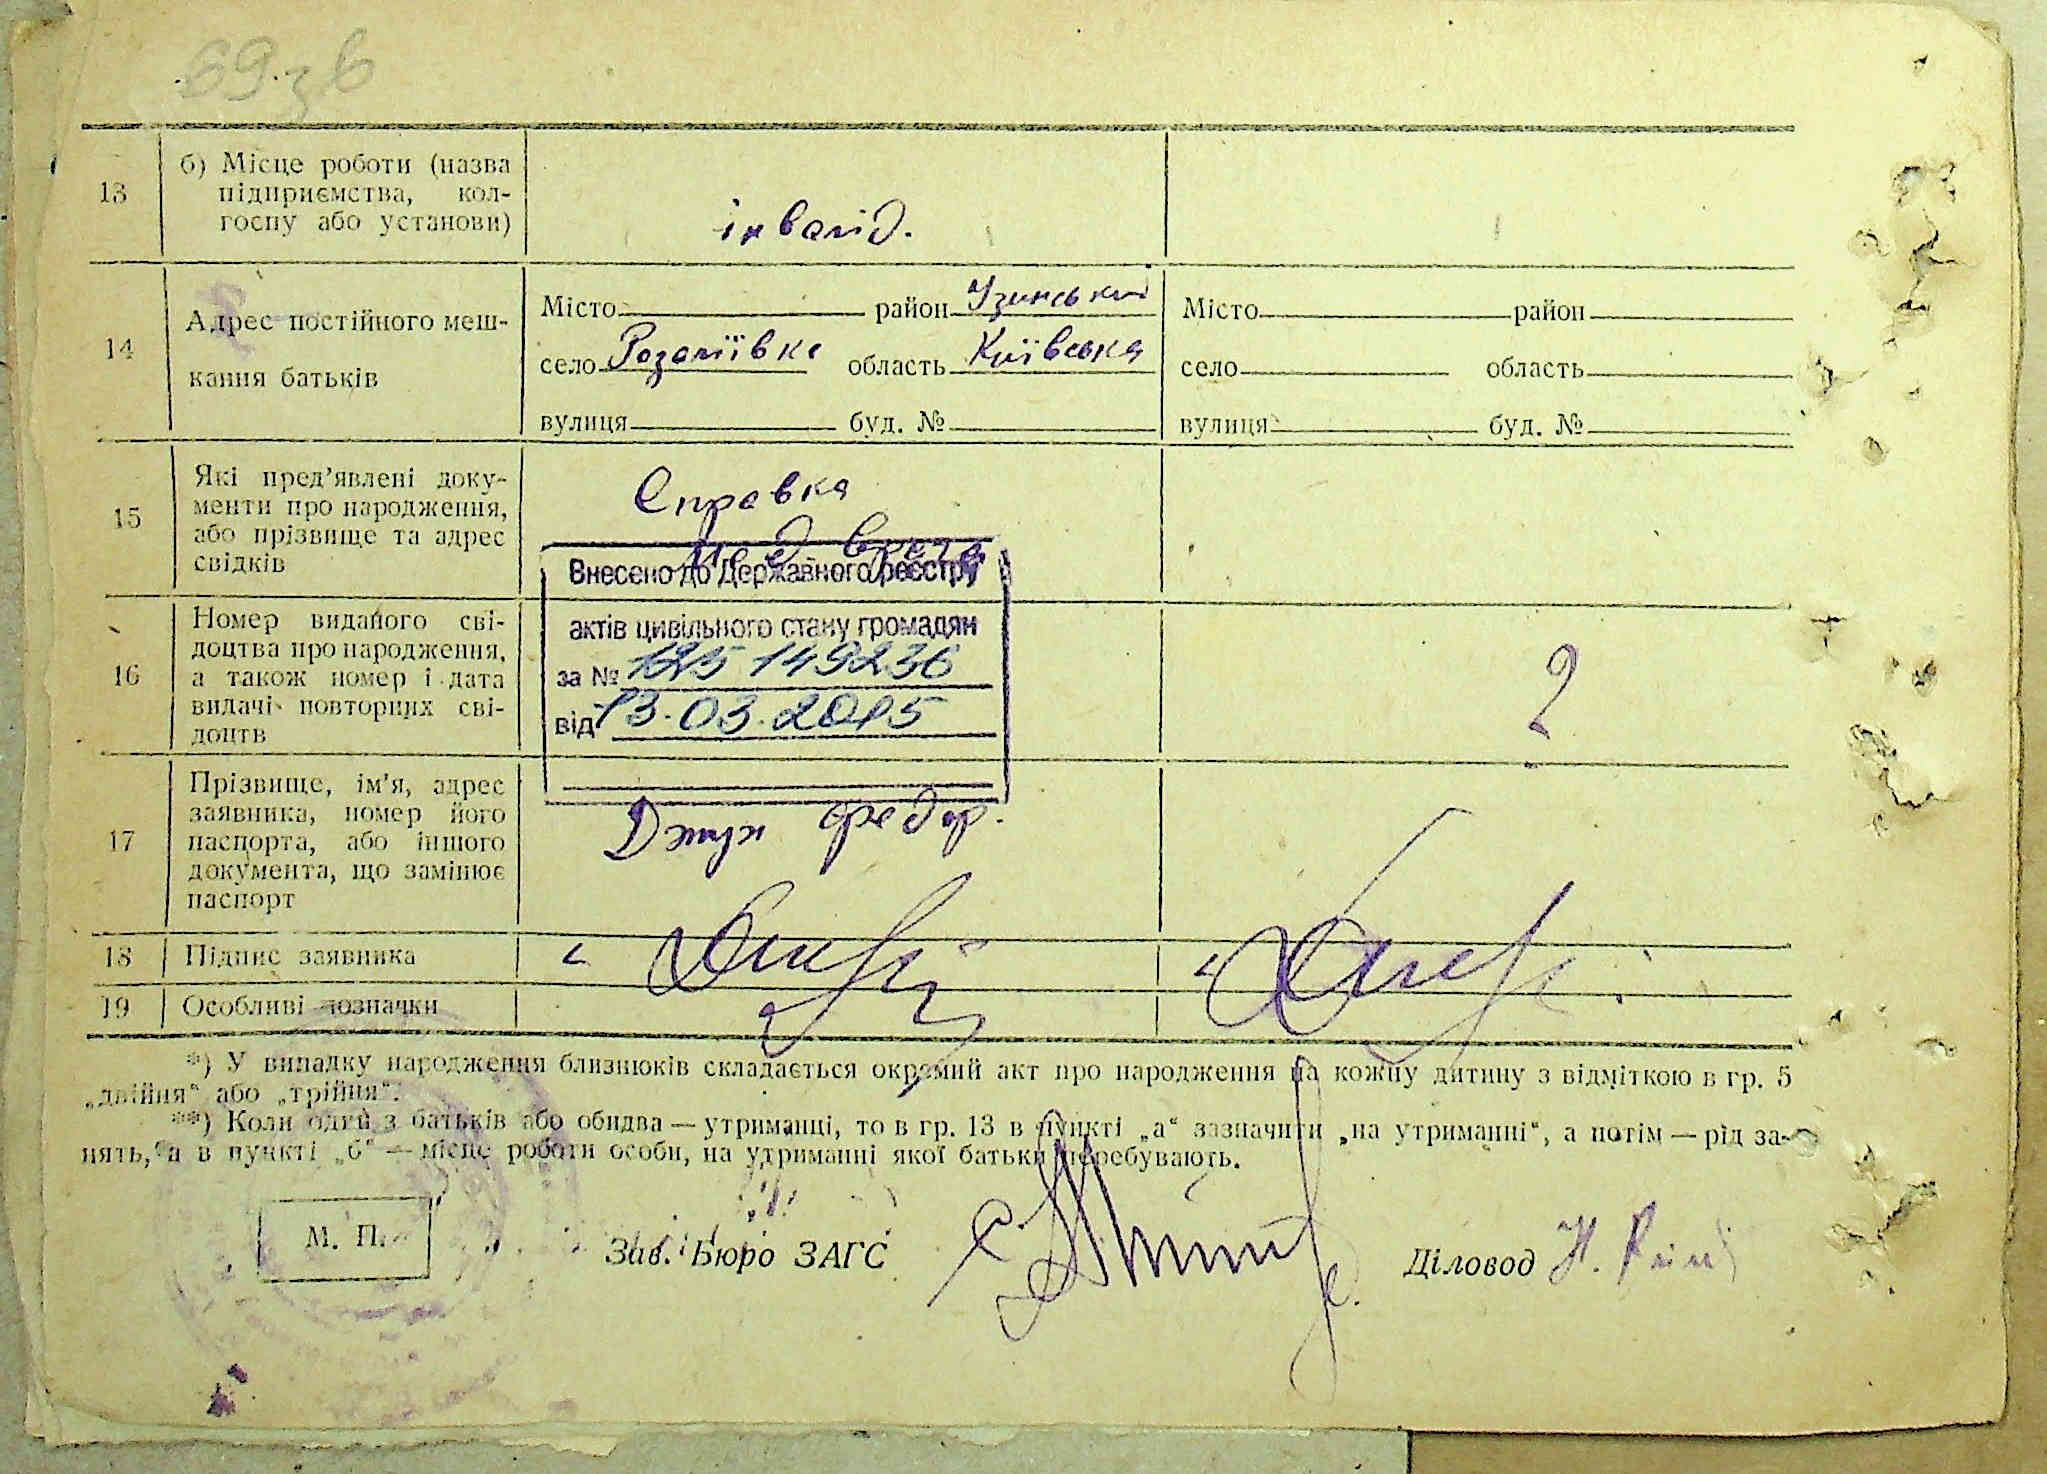 69 зв
13 б) Місце роботи (назва
підприємства, кол-
госпу або установи)
інвалід.
14 Адрес постійного меш-
кання батьків
Місто район Узинський
село Розаліївка область Київська
вулиця буд. №
Місто район
село область
вулиця буд. №
15 Які пред'явлені доку-
менти про народження,
або прізвище та адрес
свідків
Справка
16 Номер виданого сві-
доцтва про народження,
а також номер і дата
видачі повторних сві-
доцтв
Внесено до Державного реєстру
актів цивільного стану громадян
за № 125 149236
від 13.03.2015
17 Прізвище, ім'я, адрес
заявника, номер його
паспорта, або іншого
документа, що замінює
паспорт
Федор.
18 Підпис заявника
19 Особливі позначки
*) У випадку народження близнюків складається окремий акт про народження на кожну дитину з відміткою в гр. 5
„двійня“ або „трійня“.
**) Коли один з батьків або обидва — утриманці, то в гр. 13 в пункті „а“ зазначити „на утриманні“, а потім — рід за-
нять, а в пункті „б“ — місце роботи особи, на утриманні якої батьки перебувають.
М. П.
Зав. Бюро ЗАГС
Діловод